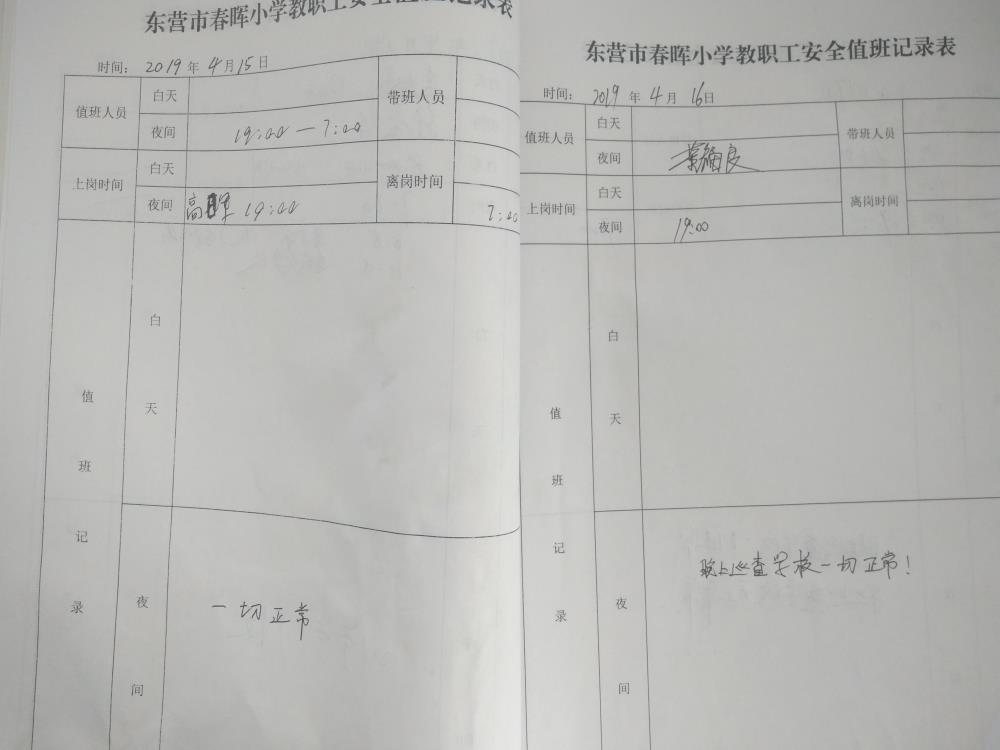 东营市春晖小学教职工安全值班记录表
时间: 2019 年 4 月 15 日
值班人员
白天
带班人员
夜间
19:00 — 7:00
上岗时间
白天
离岗时间
夜间
19:00
7:00
值班记录
白天
夜间
一切正常
东营市春晖小学教职工安全值班记录表
时间: 2019 年 4 月 16 日
值班人员
白天
带班人员
夜间
上岗时间
白天
离岗时间
夜间
19:00
值班记录
白天
夜间
晚上巡查学校一切正常!